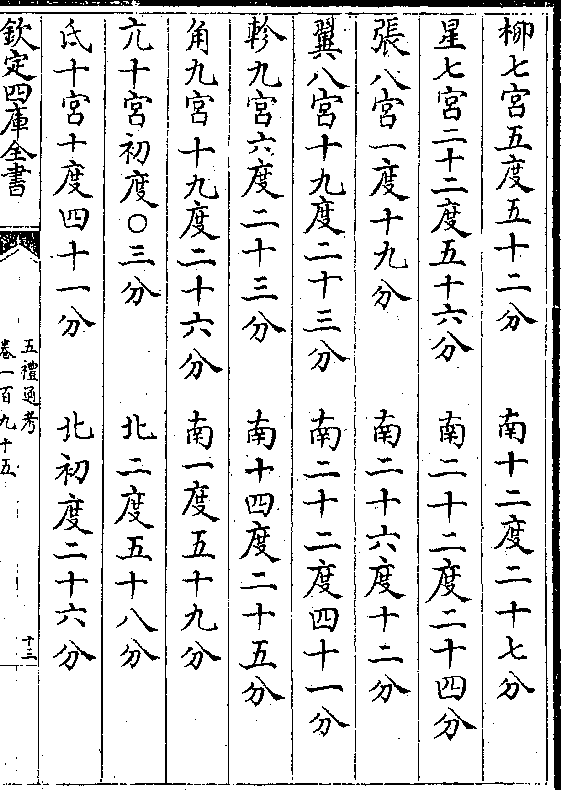 柳七宮五度五十二分　南十二度二十七分
星七宮二十二度五十六分　南二十二度二十四分
張八宮一度十九分　南二十六度十二分
翼八宮十九度二十三分　南二十二度四十一分
軫九宮六度二十三分　南十四度二十五分
角九宮十九度二十六分　南一度五十九分
亢十宮初度○三分　北二度五十八分
氐十宮十度四十一分　北初度二十六分
欽定四庫全書
五禮通考
卷一百九十五
十三